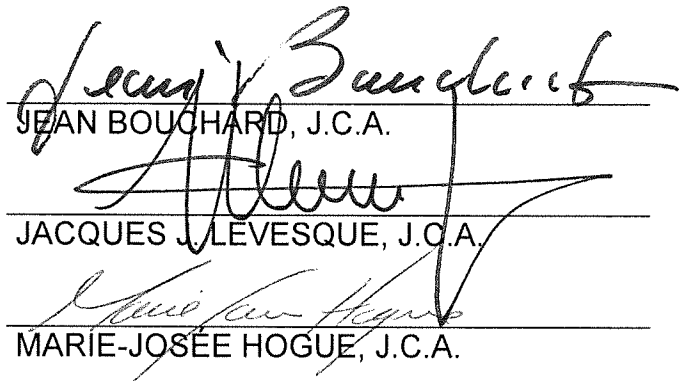 Jean Bouchard
JEAN BOUCHARD, J.C.A.
JACQUES J. LEVESQUE, J.C.A.
MARIE-JOSÉE HOGUE, J.C.A.